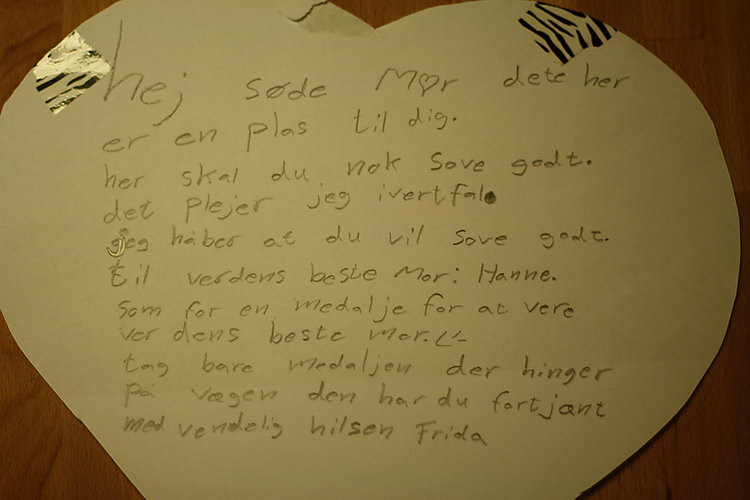 hej søde M♡r dete her
er en plas til dig.
her skal du nok sove godt.
det plejer jeg ivertfal.
jeg håber at du vil sove godt.
til verdens beste mor: Hanne.
som for en medalje for at vere
verdens beste mor. ←
tag bare medaljen der hinger
på vægen den har du fortjænt
med vendelig hilsen Frida